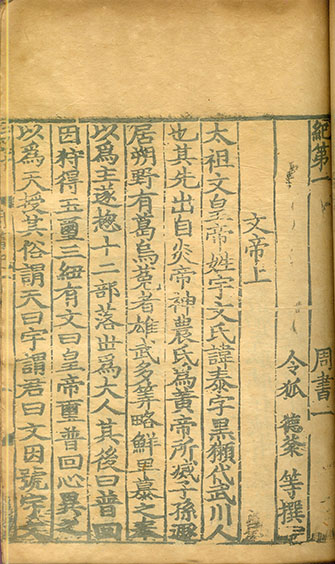 紀第一 周書一
令狐 德棻 等撰
文帝上
太祖文皇帝姓宇文氏諱泰字黑獺代武川人
也其先出自炎帝神農氏為黃帝所滅子孫遯
居朔野有葛烏菟者雄武多筭略鮮卑慕之奉
以爲主遂惣十二部落世爲大人其後曰普回
因狩得玉璽三紐有文曰皇帝璽普回心異之
以爲天授其俗謂天曰宇謂君曰文因號宇文